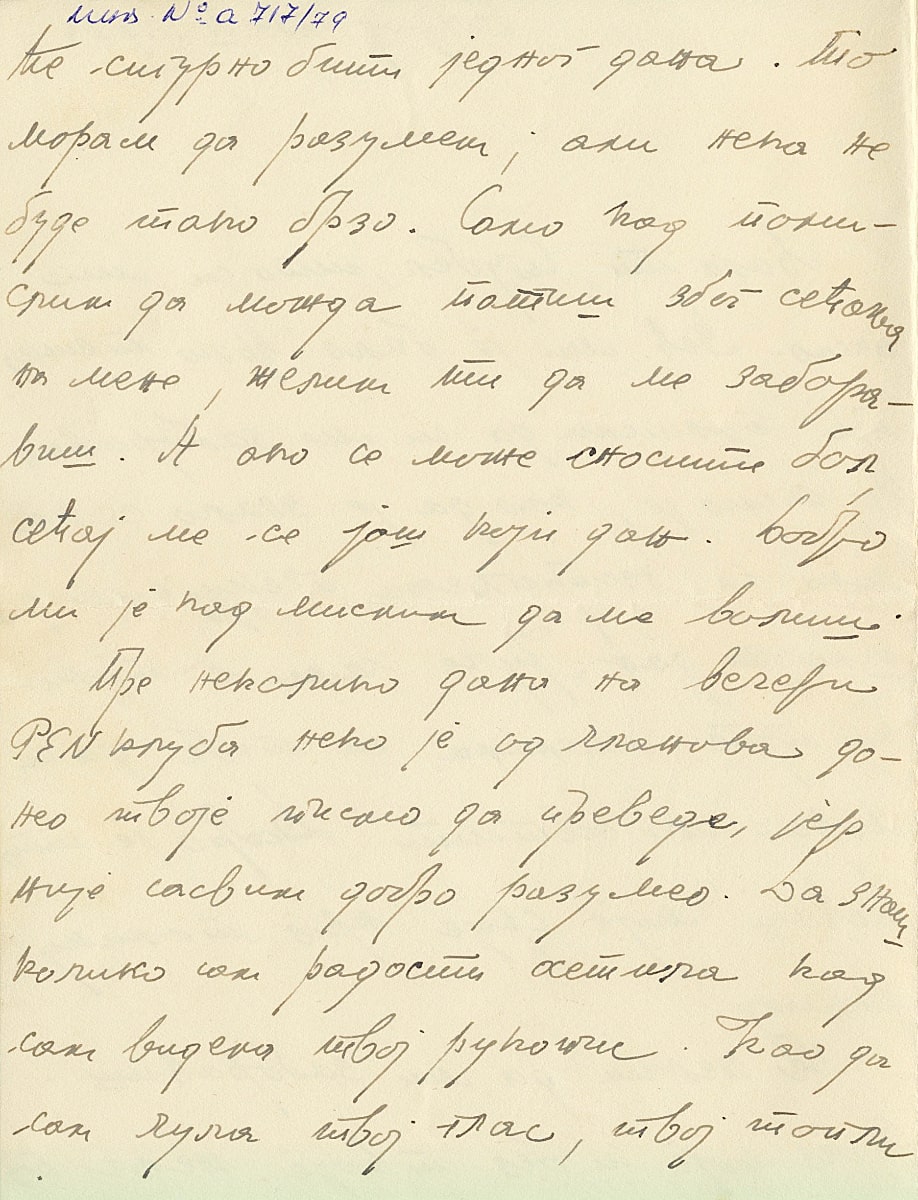 инв. № а 717/79
ће сигурно бити једног дана. То
морам да разумем; али нека не
буде тако брзо. Само кад поми-
слим да можда патиш због сећања
на мене, желим ти да ме забора-
виш. А ако се може сносити бол,
сећај ме се још који дан. Добро
ми је кад мислим да ме волиш.
Пре неколико дана на вечери
PEN клуба неко је од чланова до-
нео твоје писмо да преведе, јер
није сасвим добро разумео. Да знаш
колико сам радости осетила кад
сам видела твој рукопис. Као да
сам чула твој глас, твој топли